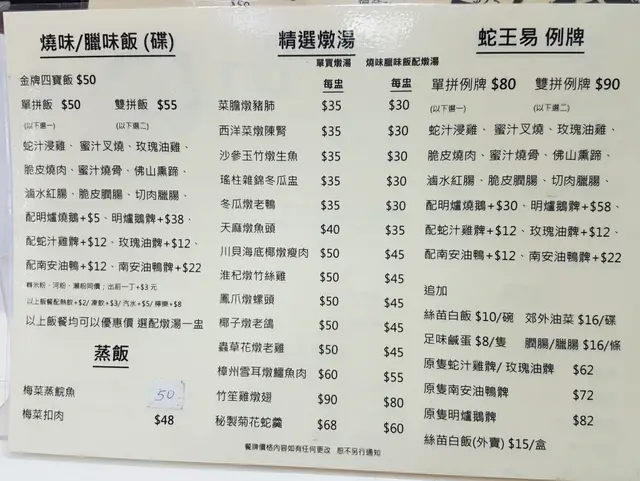 燒味/臘味飯 (碟)
金牌四寶飯 $50
單拼飯 $50 雙拼飯 $55
(以下選一) (以下選二)
蛇汁浸雞、蜜汁叉燒、玫瑰油雞、
脆皮燒肉、蜜汁燒骨、佛山熏蹄、
滷水紅腸、脆皮膶腸、切肉臘腸、
配明爐燒鵝+$5、明爐鵝髀+$38、
配蛇汁雞髀+$12、玫瑰油髀+$12、
配南安油鴨+$12、南安油鴨髀+$22
轉米粉、河粉、瀨粉同價；出前一丁+$3元
以上飯餐配熱飲+$2/ 凍飲+$3/ 汽水+$5/ 檸樂+$8
以上飯餐均可以優惠價 選配燉湯一盅
蒸飯
梅菜蒸鯇魚 50
梅菜扣肉 $48
精選燉湯
單買燉湯 燒味臘味飯配燉湯
每盅 每盅
菜膽燉豬肺 $35 $30
西洋菜燉陳腎 $35 $30
沙參玉竹燉生魚 $35 $30
瑤柱雜錦冬瓜盅 $35 $30
冬瓜燉老鴨 $35 $30
天麻燉魚頭 $40 $35
川貝海底椰燉瘦肉 $50 $45
淮杞燉竹絲雞 $50 $45
鳳爪燉螺頭 $50 $45
椰子燉老鴿 $50 $45
蟲草花燉老雞 $50 $45
樟州雪耳燉鱷魚肉 $60 $55
竹笙雞燉翅 $90 $80
秘製菊花蛇羹 $68 $60
餐牌價格內容如有任何更改 恕不另行通知
蛇王易 例牌
單拼例牌 $80 雙拼例牌 $90
(以下選一) (以下選二)
蛇汁浸雞、蜜汁叉燒、玫瑰油雞、
脆皮燒肉、蜜汁燒骨、佛山熏蹄、
滷水紅腸、脆皮膶腸、切肉臘腸、
配明爐燒鵝+$30、明爐鵝髀+$58、
配蛇汁雞髀+$12、玫瑰油髀+$12、
配南安油鴨+$12、南安油鴨髀+$22
追加
絲苗白飯 $10/碗 郊外油菜 $16/碟
足味鹹蛋 $8/隻 膶腸/臘腸 $16/條
原隻蛇汁雞髀/ 玫瑰油髀 $62
原隻南安油鴨髀 $72
原隻明爐鵝髀 $82
絲苗白飯(外賣) $15/盒